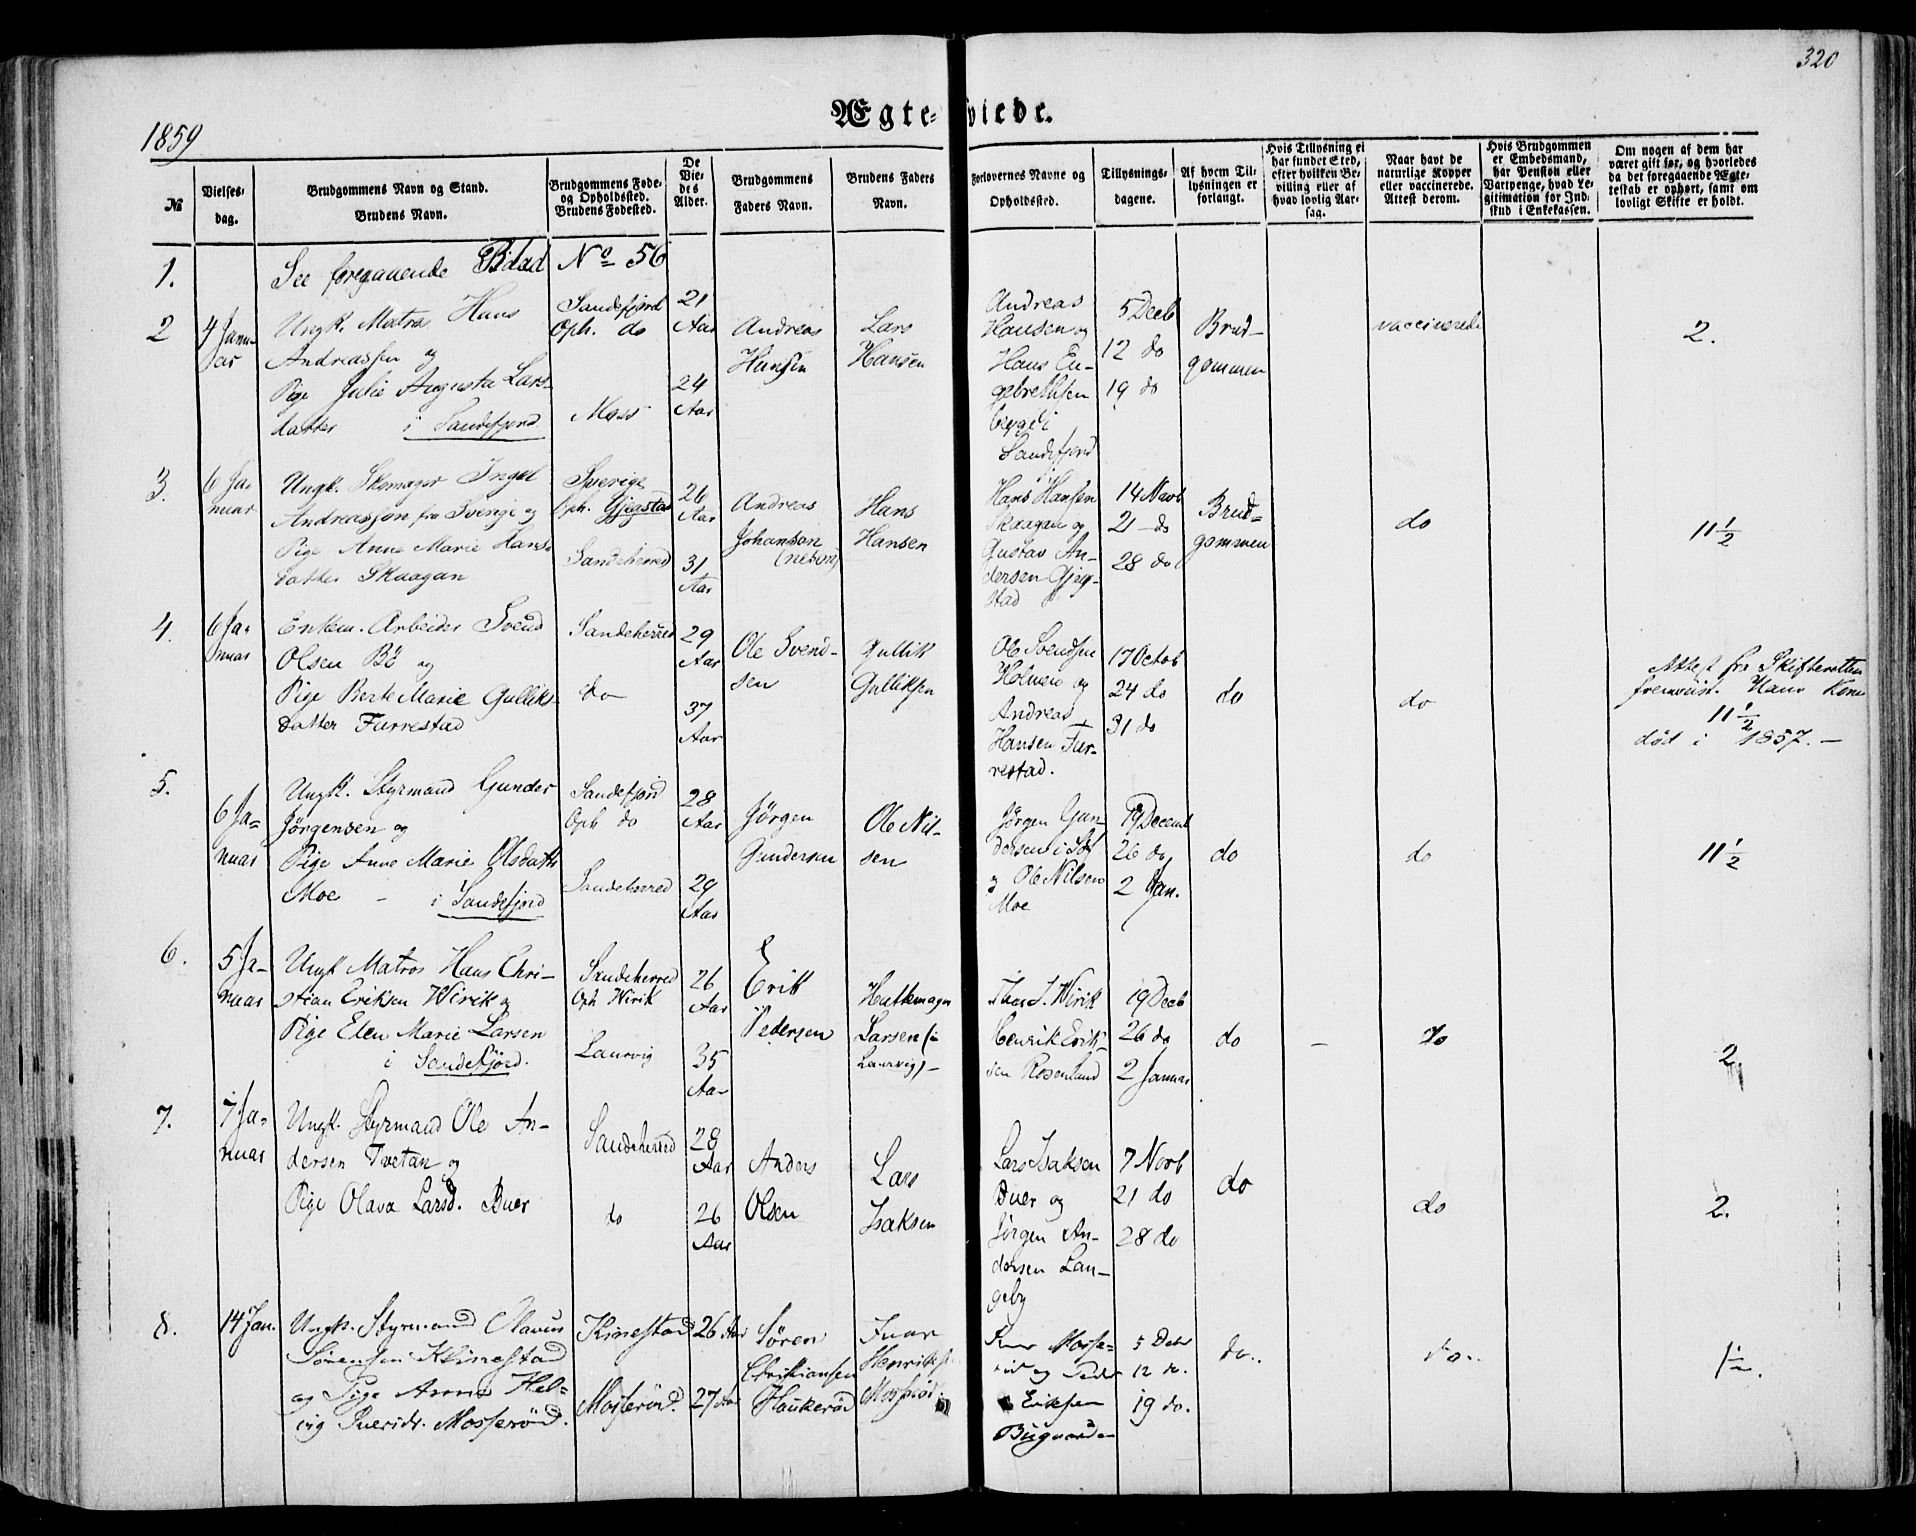 320
Ægteviede.
1859
№
Vielses-
dag.
Brudgommens Navn og Stand.
Brudens Navn.
Brudgommens Føde-
og Opholdssted.
Brudens Fødested.
De
Vie-
des
Alder.
Brudgommens
Faders Navn.
Brudens Faders
Navn.
Forlovernes Navne og
Opholdssted.
Tillysnings-
dagene.
Af hvem Til-
lysningen er
forlangt.
Hvis Tillysning ei
har fundet Sted,
efter hvilken Be-
villing eller af
hvad lovlig Aar-
sag.
Naar havt de
naturlige Kopper
eller vaccinerede.
Attest derom.
Hvis Brudgommen
er Embedsmand,
har Pension eller
Vartpenge, hvad Le-
gitimation for Ind-
skud i Enkekassen.
Om nogen af dem har
været gift før, og hvorledes
da det foregaaende Ægte-
teskab er ophørt, samt om
lovligt Skifte er holdt.
1.
See foregaaende Blad No 56
2
4 Janu-
ar
Ungk. Matros Hans
Andreassen og
Pige Julie Augusta Lars-
datter i Sandefjord
Sandefjord
Oph. do
Moss
21
Aar
24
Aar
Andreas
Hansen
Lars
Hansen
Andreas
Hansen og
Hans En-
gebrethsen
begge i
Sandefjord
5 Decb
12 do
19 do
Brud-
gommen
vaccinerede
2.
3.
6 Ja-
nuar
Ungk. Skomager Ingel
Andreasson fra Sverige og
Pige Anne Marie Hans-
datter Skaagan
Sverige
Oph. Gjegstad
Sandeherred
26
Aar
31
Aar
Andreas
Johanson
Hans
Hansen
Hans Hansen
Skaagan og
Gustav An-
dersen Gjeg-
stad
14 Novb
21 do
28 do
Brud-
gommen
do
11 1/2
4.
6 Ja-
nuar
Enkem. Arbeider Svend
Olsen Bö og
Pige Berte Marie Gulliks-
datter Furrestad
Sandeherred
do
29
Aar
37
Aar
Ole Svend-
sen
Gullik
Gulliksen
Ole Svendsen
Holmen og
Andreas
Hansen Fur-
restad.
17 Octob
24 do
31 do
do
do
Attest fra Skifteretten
fremviist. Hans Kone
11 1/2
död i 1857. —
5.
6 Ja-
nuar
Ungk. Styrmand Gunder
Jørgensen og
Pige Anne Marie Olsdatter
Moe - i Sandefjord
Sandefjord
Oph do
Sandeherred
28
Aar
29
Aar
Jørgen
Gundersen
Ole Nil-
sen
Jørgen Gun-
dersen i Sdf
og Ole Nilsen
Moe
19 Decemb
26 do
2 Jan.
do
do
11 1/2
6.
5 Ja-
nuar
Ungk Matros Hans Chri-
stian Eriksen Wirik og
Pige Elen Marie Larsen
i Sandefjord.
Sandeherred
Oph Wirik
Laurvig
26
Aar
35
Aar
Erik
Pedersen
Hattemager
Larsen (i
Laurvig) -
Wirik
Henrik Erik-
sen Rosenlund
19 Decb
26 do
2 Januar
do
-
do
2.
7.
7 Ja-
nuar
Ungk. Styrmand Ole An-
dersen Tvetan og
Pige Olava Larsd. Buer
Sandeherred
do
28
Aar
26
Aar
Anders
Olsen
Lars
Isaksen
Lars Isaksen
Buer og
Jørgen An-
dersen Lan-
geby
7 Novb
21 do
28 do
do
do
2.
8.
14 Jan.
Ungk. Styrmand Olavus
Sørensen Klinestad
og Pige Anne Hel-
vig Iversdr. Mosserød.
Klinestad
Mosserød.
26 Aar
27 Aar
Søren
Christiansen
Haukerød
Ivar
Henriksen
Mosserød
Iver Mosse-
rød og Peder
Eriksen
Bugaarden
5 Decbr
12 do.
19 do.
do.
do.
1 1/2.